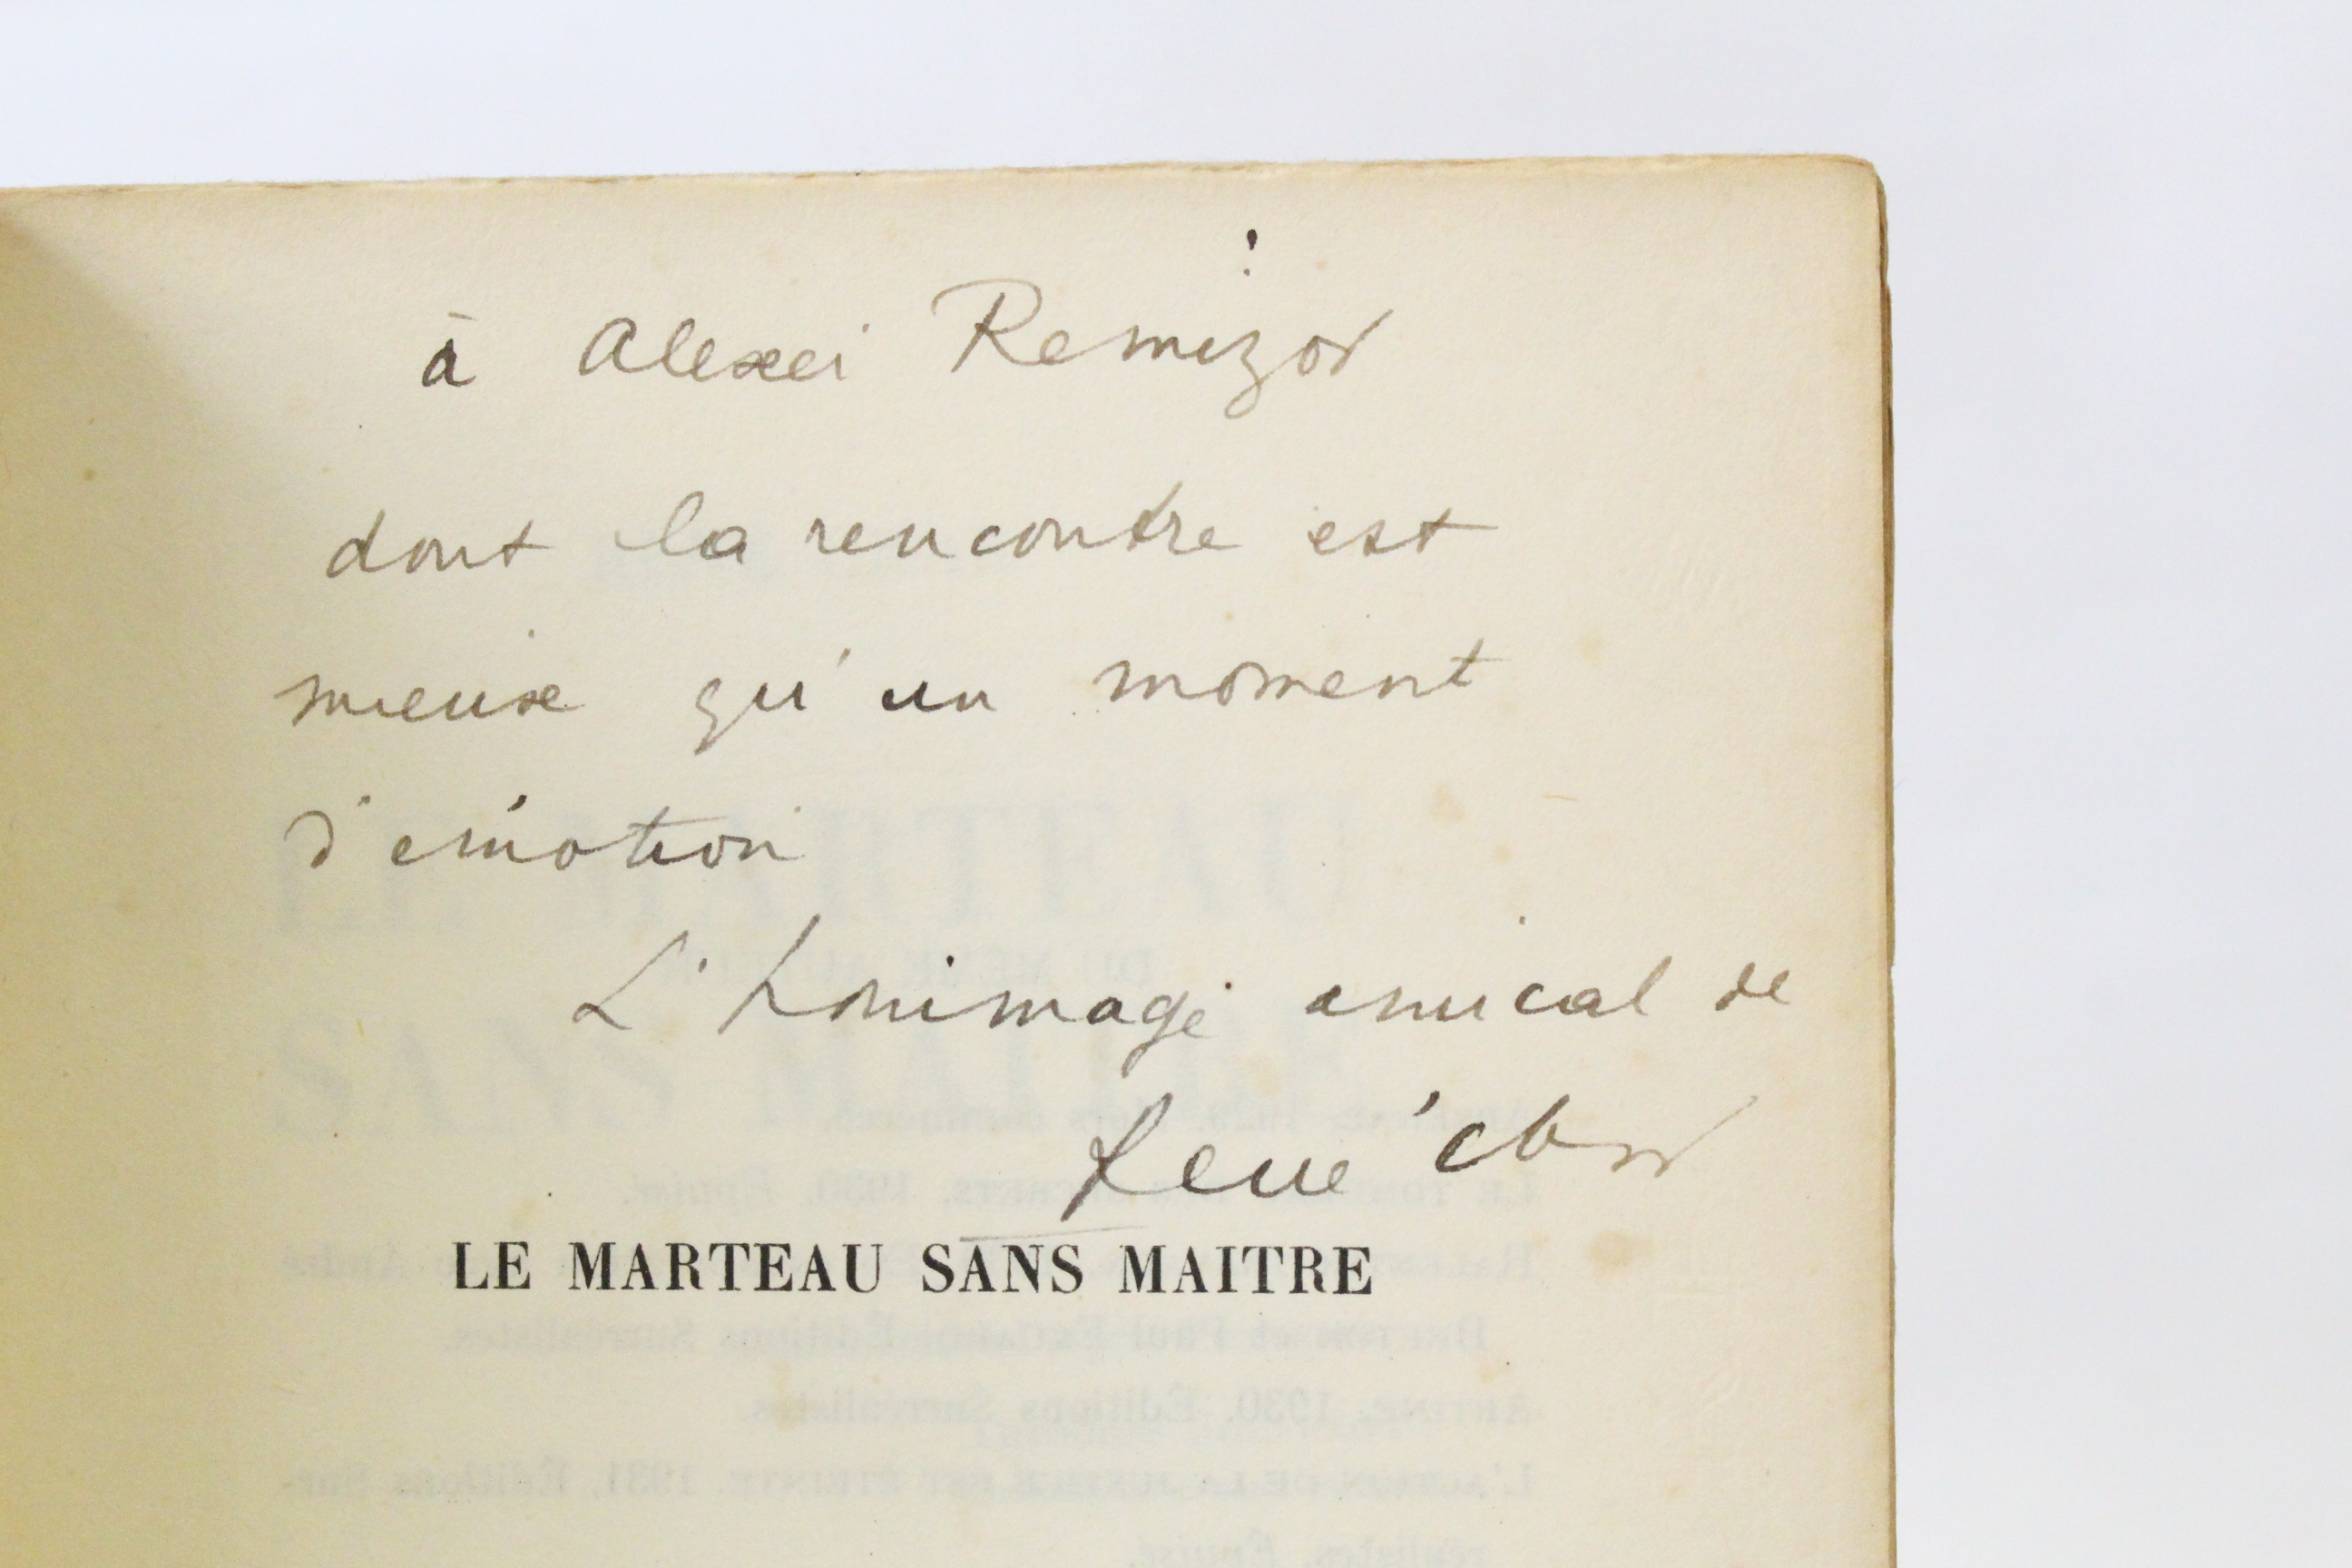 à Alexei Remizov
dont la rencontre est
mieux qu'un moment
d'émotion
L'hommage amical de
René Char
LE MARTEAU SANS MAITRE